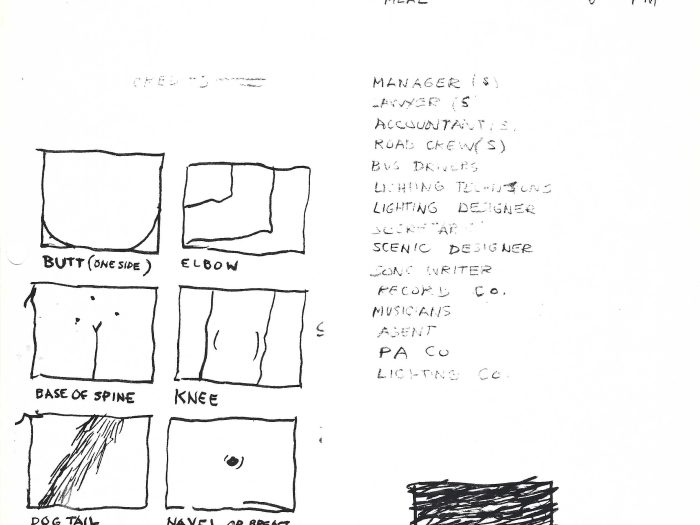 CREDITS
MANAGER (S)
LAWYER (S
ACCOUNTANT(S)
ROAD CREW(S)
BUS DRIVERS
LIGHTING TECHNICIONS
LIGHTING DESIGNER
SCENIC DESIGNER
SONG WRITER
RECORD CO.
MUSICIANS
AGENT
PA CO
LIGHTING CO.
BUTT (ONE SIDE)
ELBOW
BASE OF SPINE
KNEE
DOG TAIL
NAVEL OR BREAST